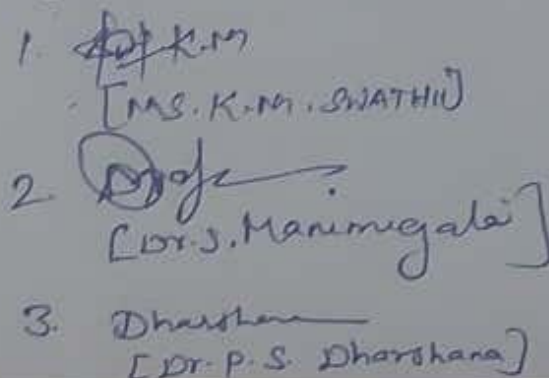 1. K.M
[MS. K.M. SWATHI]
2.
[Dr. S. Manimegalai]
3. Dharshana
[Dr. P. S. Dharshana]